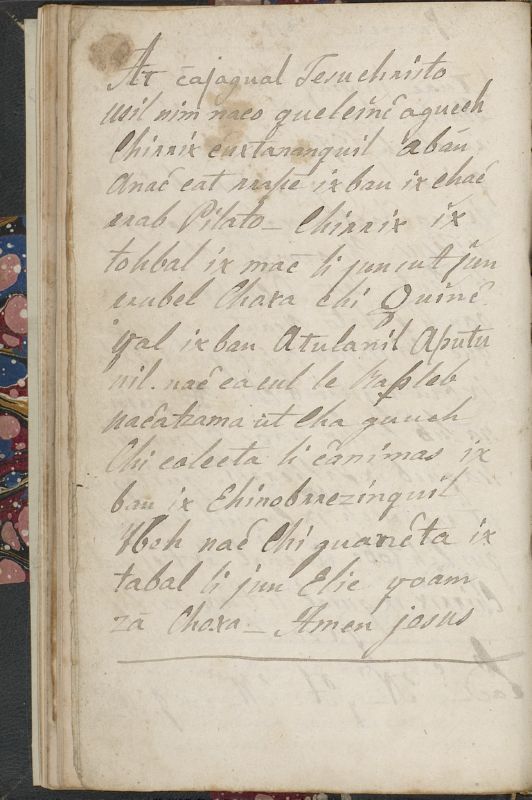 At c̄ajagual Jesuchristo
usil nim naco queleinc̄ aguech
Chirrix c̄uxtananquil abān
Anac̄ cat rrupe ixban ix chac̄
erab Pilato_ Chirrix ix
tohbal ix mac̄ li junsut jūn
erubel Choxa chi Quinc̄
yal ixban Atulanil Aputu
nil. nac̄ cacul le
nac̄atzama ut Cha guuch
Chi colecta li c̄animas ix
ban ix Ehinobrrezinquil
nac̄ Chi guanc̄ta ix
tabal li jun Elic yoam
zā Choxa_ Amen jesus